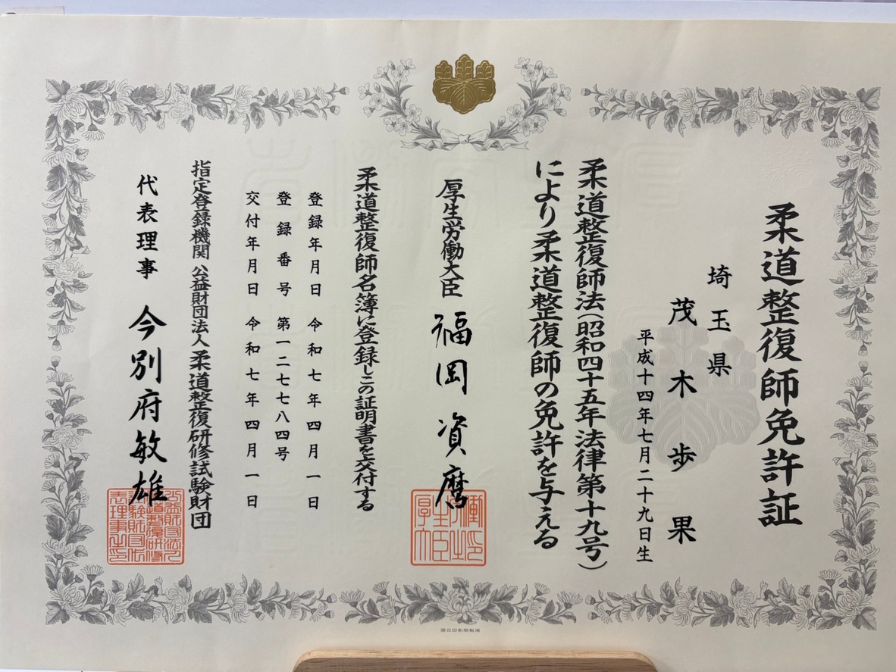 柔道整復師免許証
埼玉県
茂木歩果
平成十四年七月二十九日生
柔道整復師法(昭和四十五年法律第十九号)
により柔道整復師の免許を与える
厚生労働大臣 福岡資麿
柔道整復師名簿に登録しこの証明書を交付する
登録年月日 令和七年四月一日
登録番号 第一二七七八四号
交付年月日 令和七年四月一日
指定登録機関 公益財団法人 柔道整復研修試験財団
代表理事 今別府敏雄